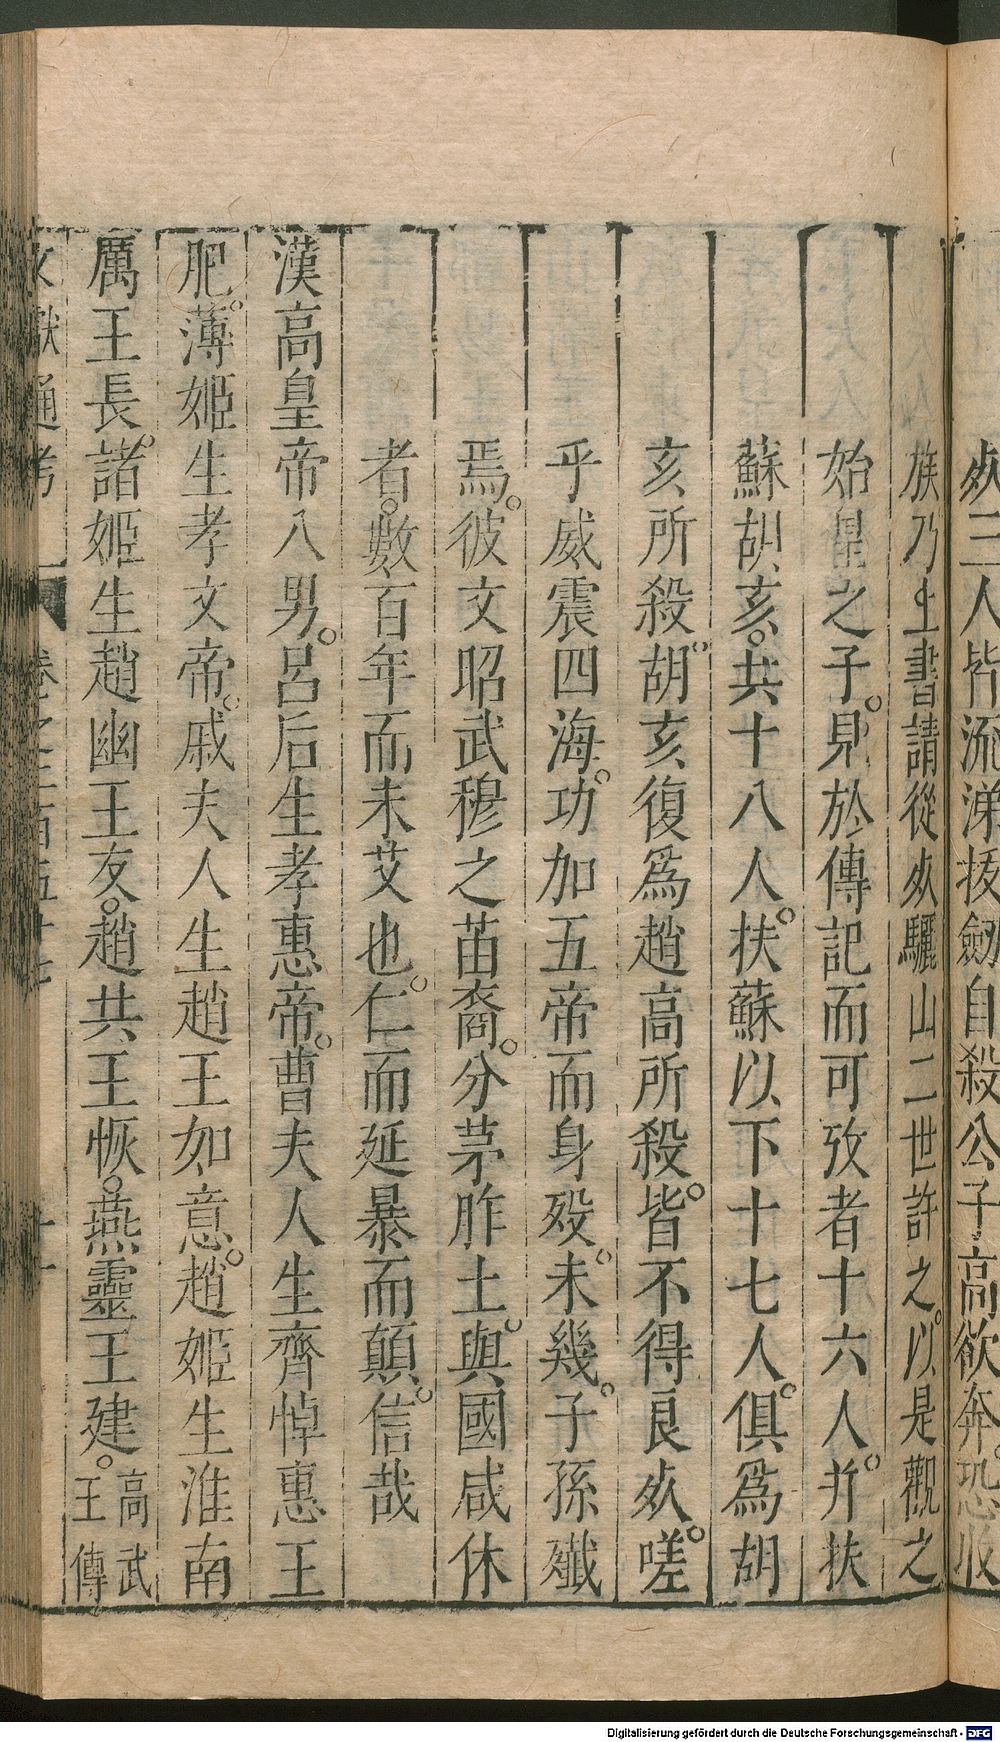 死三人皆流涕拔劒自殺公子高欲奔恐收
族乃上書請從死驪山二世許之以是觀之
始皇之子見於傳記而可攷者十六人并扶
蘇胡亥共十八人扶蘇以下十七人俱爲胡
亥所殺胡亥復爲趙高所殺皆不得良死嗟
乎威震四海功加五帝而身殁未幾子孫殲
焉彼文昭武穆之苗裔分茅胙土與國咸休
者數百年而未艾也仁而延暴而顛信哉
漢高皇帝八男呂后生孝惠帝曹夫人生齊悼惠王
肥薄姬生孝文帝戚夫人生趙王如意趙姬生淮南
厲王長諸姬生趙幽王友趙共王恢燕靈王建高武王傳
文獻通考 卷之二百五十七 十一
Digitalisierung gefördert durch die Deutsche Forschungsgemeinschaft - DFG